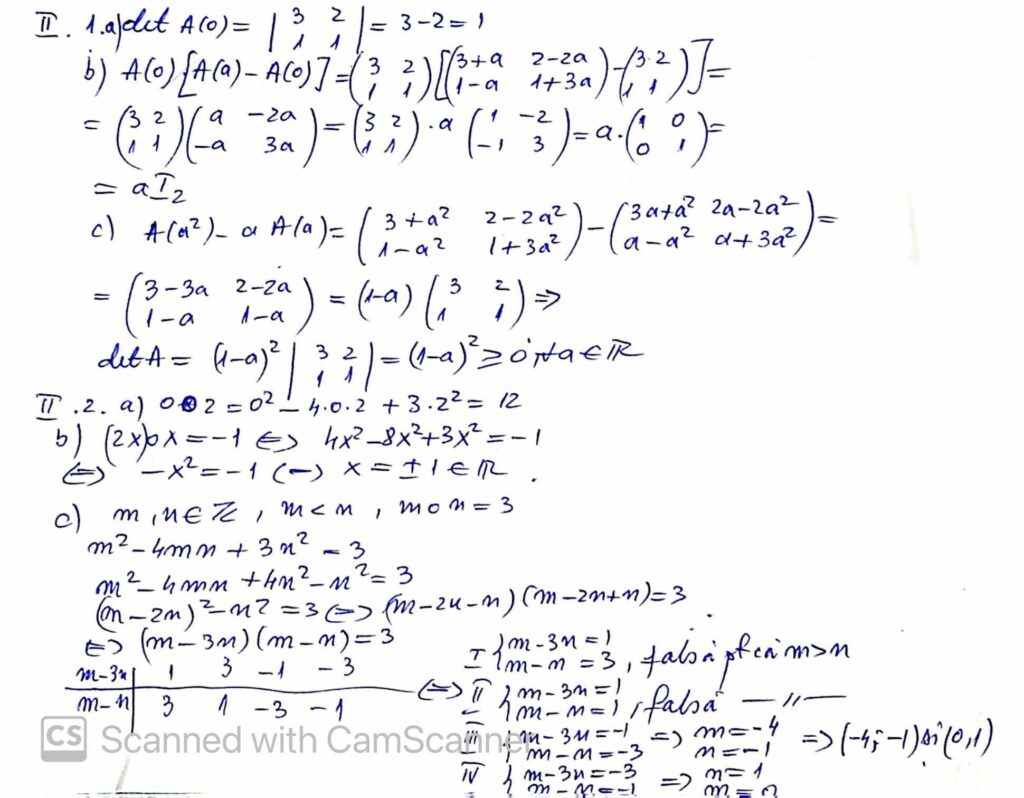 II. 1.a) det A(0) = | 3 2 / 1 1 | = 3-2 = 1
b) A(0)[A(a) - A(0)] = (3 2 / 1 1)[(3+a 2-2a / 1-a 1+3a) - (3 2 / 1 1)] =
= (3 2 / 1 1)(a -2a / -a 3a) = (3 2 / 1 1)·a(1 -2 / -1 3) = a·(1 0 / 0 1) =
= aI₂
c) A(a²) - a A(a) = (3+a² 2-2a² / 1-a² 1+3a²) - (3a+a² 2a-2a² / a-a² a+3a²) =
= (3-3a 2-2a / 1-a 1-a) = (1-a)(3 2 / 1 1) ⇒
det A = (1-a)² | 3 2 / 1 1 | = (1-a)² ≥ 0, ∀a∈ℝ
II.2. a) 0∘2 = 0² - 4·0·2 + 3·2² = 12
b) (2x)∘x = -1 ⇔ 4x² - 8x² + 3x² = -1
⇔ -x² = -1 (-) x = ±1 ∈ ℝ.
c) m, n ∈ ℤ, m < n, m∘n = 3
m² - 4mn + 3n² - 3
m² - 4mn + 4n² - n² = 3
(m-2n)² - n² = 3 ⇔ (m-2n-n)(m-2n+n) = 3
⇔ (m-3n)(m-n) = 3
m-3n | 1 3 -1 -3
m-n | 3 1 -3 -1
⇔ I { m-3n = 1 / m-n = 3, falsă pt că m>n
II { m-3n = 1 / m-n = 1, falsă —〃—
III { m-3n = -1 / m-n = -3 ⇒ m = -4 / n = -1 ⇒ (-4; -1) și (0, 1)
IV { m-3n = -3 / m-n = -1 ⇒ n = 1 / m =
CS Scanned with CamScanner